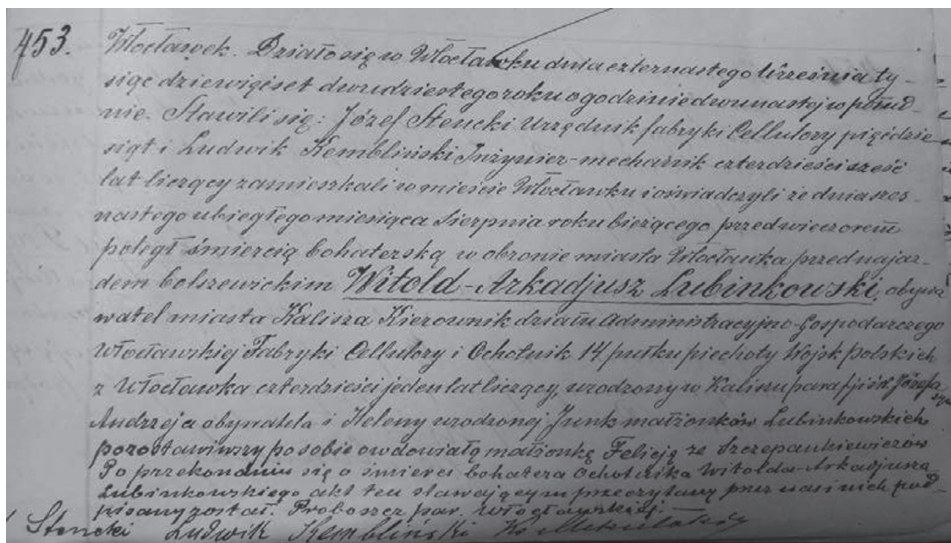 453. Włocławek. Działo się w Włocławku dnia czternastego Września ty-
siąc dziewięćset dwudziestego roku o godzinie dwunastej w połud-
nie. Stawili się: Józef Stencki Urzędnik fabryki Cellulozy pięćdzie-
siąt i Ludwik Kembliński Inżynier-mechanik czterdzieści sześć
lat liczący zamieszkali w mieście Włocławku i oświadczyli że dnia szes-
nastego ubiegłego miesiąca Sierpnia roku bieżącego przed wieczorem
poległ śmiercią bohaterską w obronie miasta Włocławka przed najaz-
dem bolszewickim Witold-Arkadjusz Lubinkowski, obywa
watel miasta Kalisza Kierownik działu Administracyjno-Gospodarczego
Włocławskiej Fabryki Cellulozy i Ochotnik 14 pułku piechoty Wojsk Polskich
z Włocławka czterdzieści jeden lat liczący, urodzony w Kaliszu parafji św. Józefa, syn
Andrzeja obywatela i Heleny urodzonej Junk małżonków Lubinkowskich
pozostawiwszy po sobie owdowiałą małżonkę Felicję ze Szczepankiewiczów
Po przekonaniu się o śmierci bohatera Ochotnika Witolda-Arkadjusza
Lubinkowskiego akt ten stawającym przeczytany przez nas i nich pod-
pisany został. Proboszcz par. Włocławskiej
Stencki Ludwik Kembliński